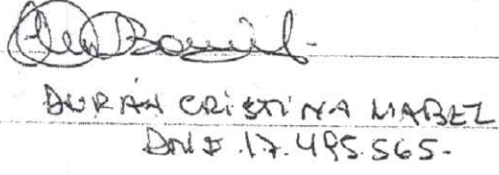 DURÁN CRISTINA MABEL
DNI 17.495.565-